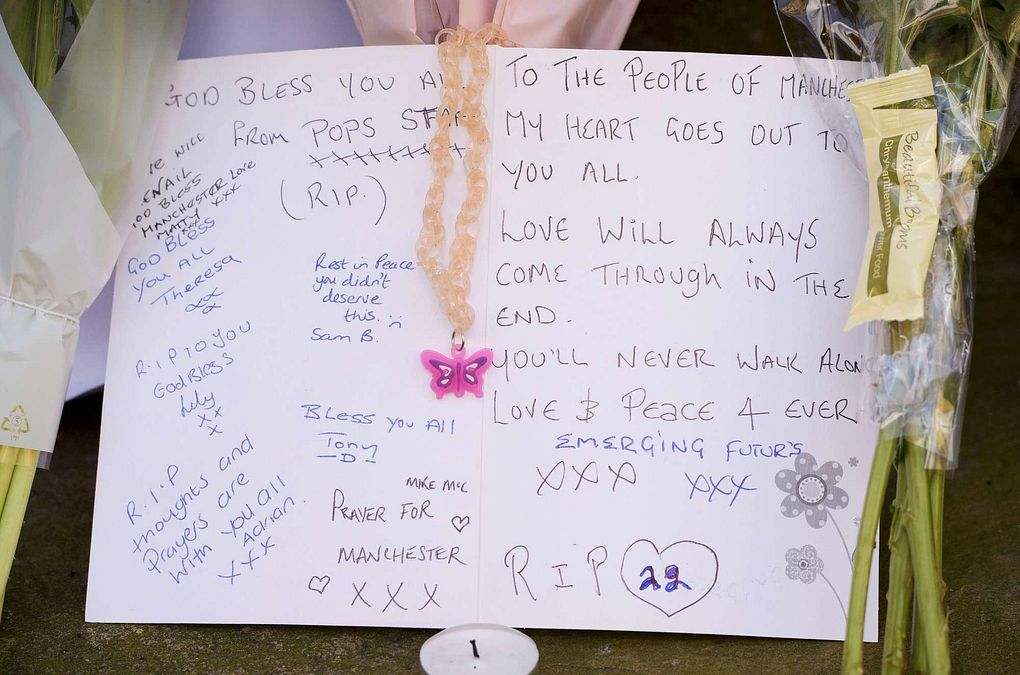 GOD BLESS YOU
FROM POPS
(R.I.P.)
WE WILL
PREVAIL
GOD BLESS
MANCHESTER Love
MATTY XXX
GOD BLESS
YOU ALL
Theresa
XX
Rest in Peace
you didn't
deserve
this. :(
Sam B.
R.I.P TO YOU
God Bless
Lily
X X
X
Bless you All
Tony
-D-
R.I.P
thoughts and
Prayers are
with you all
Adrian.
XXX
MIKE MCC
PRAYER FOR
MANCHESTER
X X X
TO THE PEOPLE OF
MY HEART GOES OUT TO
YOU ALL.
LOVE WILL ALWAYS
COME THROUGH IN THE
END.
YOU'LL NEVER WALK ALON
LOVE & PEACE 4 EVER
EMERGING FUTURS
XXX XXX
R I P 22
Beautiful Blooms
Chrysanthemum
Food
5
PP
1